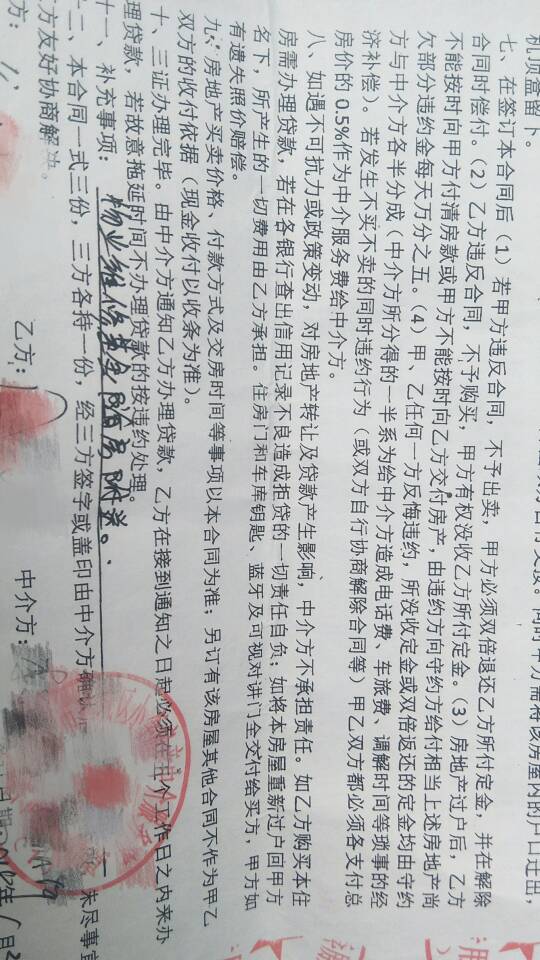 机顶盒留下。
七、在签订本合同后（1）若甲方违反合同，不予出卖，甲方必须双倍退还乙方所付定金，并在解除
合同时偿付。（2）乙方违反合同，不予购买，甲方有权没收乙方所付定金。（3）房地产过户后，乙方
不能按时向甲方付清房款或甲方不能按时向乙方交付房产，由违约方向守约方给付相当上述房地产尚
欠部分违约金每天万分之五。（4）甲、乙任何一方反悔违约，所没收定金或双倍返还的定金均由守约
方与中介方各半分成（中介方所分得的一半系为给中介方造成电话费、车旅费、调解时间等琐事的经
济补偿）。若发生不买不卖的同时违约行为（或双方自行协商解除合同等）甲乙双方都必须各支付总
房价的0.5%作为中介服务费给中介方。
八、如遇不可抗力或政策变动，对房地产转让及贷款产生影响，中介方不承担责任。如乙方购买本住
房需办理贷款，若在各银行查出信用记录不良造成拒贷的一切责任自负；如将本房屋重新过户回甲方
名下，所产生的一切费用由乙方承担。住房门和车库钥匙、蓝牙及可视对讲门全交付给买方，甲方如
有遗失照价赔偿。
九、房地产买卖价格、付款方式及交房时间等事项以本合同为准；另订有该房屋其他合同不作为甲乙
双方的收付依据（现金收付以收条为准）。
十、三证办理完毕。由中介方通知乙方办理贷款，乙方在接到通知之日起必须在 个工作日之内来办
理贷款，若故意拖延时间不办理贷款的按违约处理
十一、补充事项：物业维修基金随房附送。
未尽事宜
二、本合同一式三份，三方各持一份，经三方签字或盖印由中介方
方友好协商解决。
方：
乙方：
中介方：
日期